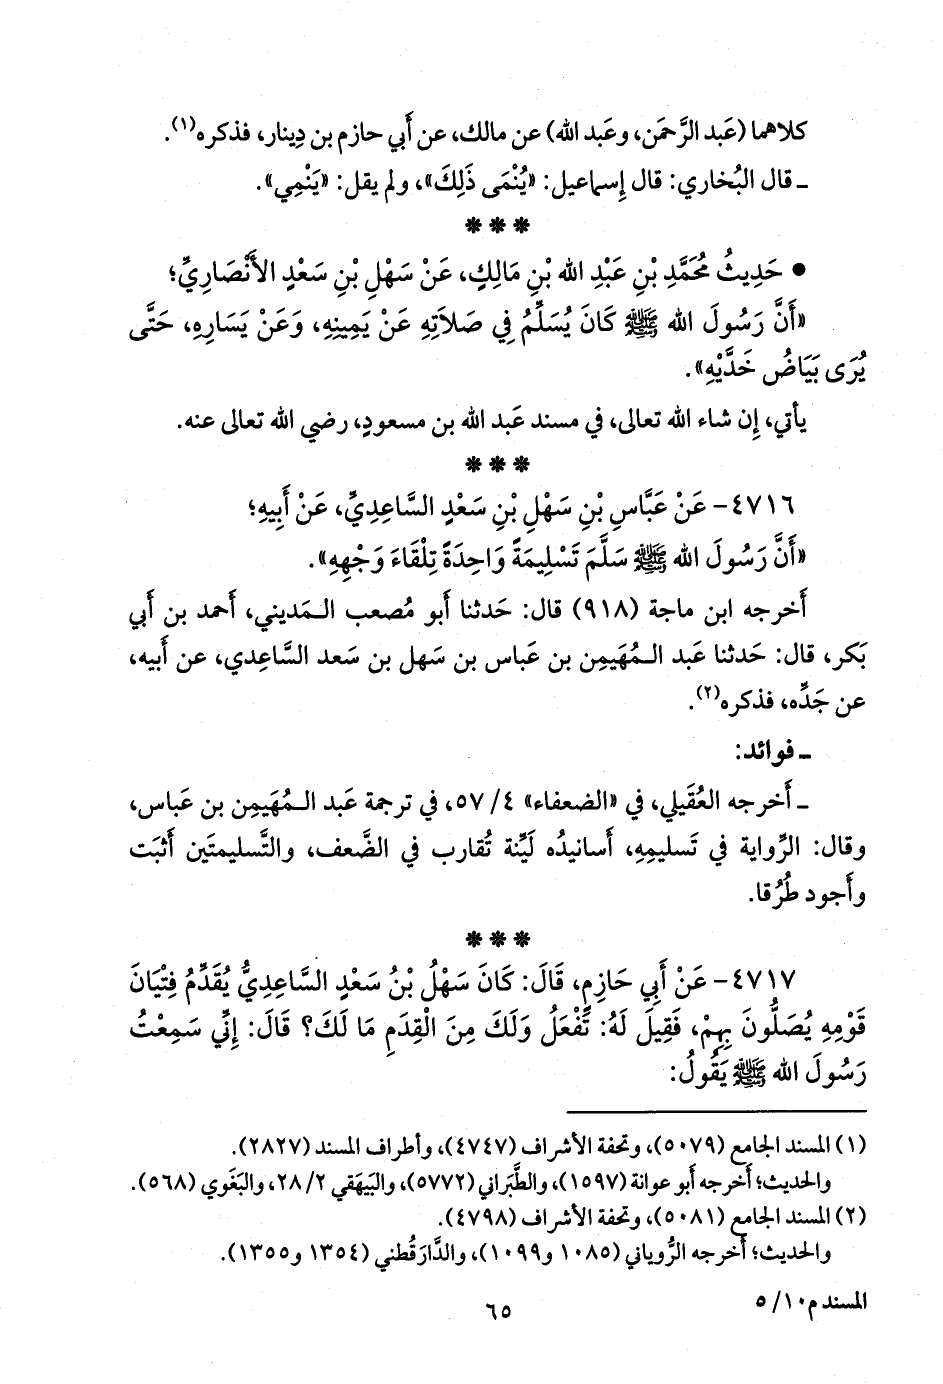 كلاهما (عَبد الرَّحمَن، وعَبد الله) عن مالك، عن أَبي حازم بن دِينار، فذكره(١).
ـ قال البُخاري: قال إِسماعيل: «يُنْمَى ذَلِكَ»، ولم يقل: «يَنْمِي».
* * *
• حَدِيثُ مُحَمَّدِ بْنِ عَبْدِ الله بْنِ مَالِكٍ، عَنْ سَهْلِ بْنِ سَعْدٍ الأَنْصَارِيِّ؛
«أَنَّ رَسُولَ الله ﷺ كَانَ يُسَلِّمُ فِي صَلاَتِهِ عَنْ يَمِينِهِ، وَعَنْ يَسَارِهِ، حَتَّى
يُرَى بَيَاضُ خَدَّيْهِ».
يأتي، إِن شاء الله تعالى، في مسند عَبد الله بن مسعودٍ، رضي الله تعالى عنه.
* * *
٤٧١٦- عَنْ عَبَّاسِ بْنِ سَهْلِ بْنِ سَعْدٍ السَّاعِدِيِّ، عَنْ أَبِيهِ؛
«أَنَّ رَسُولَ الله ﷺ سَلَّمَ تَسْلِيمَةً وَاحِدَةً تِلْقَاءَ وَجْهِهِ».
أَخرجه ابن ماجة (٩١٨) قال: حَدثنا أَبو مُصعب الـمَديني، أَحمد بن أَبي
بَكر، قال: حَدثنا عَبد الـمُهَيمِن بن عَباس بن سَهل بن سَعد السَّاعِدي، عن أَبيه،
عن جَدِّه، فذكره(٢).
ـ فوائد:
ـ أَخرجه العُقَيلي، في «الضعفاء» ٤/ ٥٧، في ترجمة عَبد الـمُهَيمِن بن عَباس،
وقال: الرِّواية في تَسليمِهِ، أَسانيدُه لَيِّنة تُقارب في الضَّعف، والتَّسليمتَين أَثبَت
وأَجود طُرُقا.
* * *
٤٧١٧- عَنْ أَبِي حَازِمٍ، قَالَ: كَانَ سَهْلُ بْنُ سَعْدٍ السَّاعِدِيُّ يُقَدِّمُ فِتْيَانَ
قَوْمِهِ يُصَلُّونَ بِهِمْ، فَقِيلَ لَهُ: تَفْعَلُ وَلَكَ مِنَ الْقِدَمِ مَا لَكَ؟ قَالَ: إِنِّي سَمِعْتُ
رَسُولَ الله ﷺ يَقُولُ:
(١) المسند الجامع (٥٠٧٩)، وتحفة الأشراف (٤٧٤٧)، وأطراف المسند (٢٨٢٧).
والحديث؛ أخرجه أبو عوانة (١٥٩٧)، والطَّبَراني (٥٧٧٢)، والبَيهَقي ٢/ ٢٨، والبَغَوي (٥٦٨).
(٢) المسند الجامع (٥٠٨١)، وتحفة الأشراف (٤٧٩٨).
والحديث؛ أخرجه الرُّوياني (١٠٨٥ و١٠٩٩)، والدَّارَقُطني (١٣٥٤ و١٣٥٥).
المسند م١٠/ ٥
٦٥